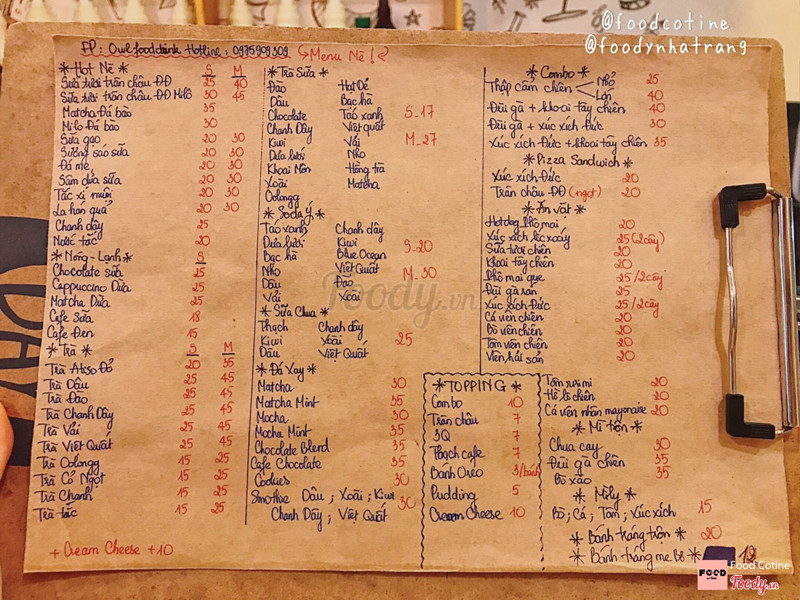 @foodcotine
@foodynhatrang
FP: Owl food drink Hotline: 0975909309 Menu Nè!
* Hot Nè * S M
Sữa tươi trân châu ĐĐ 25 40
Sữa tươi trân châu ĐĐ Milô 30 45
Matcha Đá bào 35
Milo Đá bào 30
Sữa gạo 20 30
Sương sáo sữa 20 30
Đá me 20 30
Sâm dứa sữa 20 30
Tắc xí muội 20 30
La hán quả 20 30
Chanh dây 25
Nước tắc 20
* Nóng - Lạnh * S
Chocolate sữa 25
Cappuccino Dừa 25
Matcha Dừa 25
Cafe Sữa 18
Cafe Đen 15
* Trà * S M
Trà Atiso Đỏ 20 35
Trà Dâu 25 45
Trà Đào 25 45
Trà Chanh Dây 25 45
Trà Vải 25 45
Trà Việt Quất 25 45
Trà Oolongg 15 25
Trà Cỏ Ngọt 15 25
Trà Chanh 15 25
Trà tắc 15 25
+ Cream Cheese +10
* Trà Sữa *
Đào Hạt Dẻ
Dâu Bạc hà
Chocolate Táo xanh S_17
Chanh Dây Việt quất
Kiwi Vải M_27
Dưa lưới Nho
Khoai Môn Hồng trà
Xoài Matcha
Oolongg
* Soda Ý *
Táo xanh Chanh dây
Dưa lưới Kiwi S_20
Bạc hà Blue Ocean
Nho Việt Quất M_30
Dâu Đào
Vải Xoài
* Sữa Chua *
Thạch Chanh dây
Kiwi Xoài 25
Dâu Việt Quất
* Đá Xay *
Matcha 30
Matcha Mint 35
Mocha 30
Mocha Mint 35
Chocolate Blend 35
Cafe Chocolate 35
Cookies 30
Smoothie Dâu ; Xoài ; Kiwi 30
Chanh Dây ; Việt Quất
* Combo *
Thập cẩm chiên Nhỏ 25
Lớn 40
Đùi gà + khoai tây chiên 40
Đùi gà + xúc xích Đức 30
Xúc xích Đức + khoai tây chiên 35
* Pizza Sandwich *
Xúc xích Đức 20
Trân châu ĐĐ (ngọt) 20
* Ăn vặt *
Hotdog Phô mai 20
Xúc xích lốc xoáy 25 (2 cây)
Sữa tươi chiên 20
Khoai tây chiên 20
Phô mai que 25/2 cây
Đùi gà rán 25
Xúc xích Đức 25/2 cây
Cá viên chiên 20
Bò viên chiên 20
Tôm viên chiên 20
Viên hải sản 20
* TOPPING *
Combo 10
Trân châu 7
3Q 7
Thạch cafe 7
Bánh Oreo 3/bánh
Pudding 5
Cream Cheese 10
Tôm surimi 20
Hồ lô chiên 20
Cá viên nhân mayonaise 20
* Mì trộn *
Chua cay 30
Đùi gà chiên 35
Bò xào 35
* Mì ly *
Bò ; Cá ; Tôm ; Xúc xích 15
* Bánh tráng trộn * 20
* Bánh tráng me Bò * 12
Foody.vn
FOOD
Food Cotine
Foody.vn